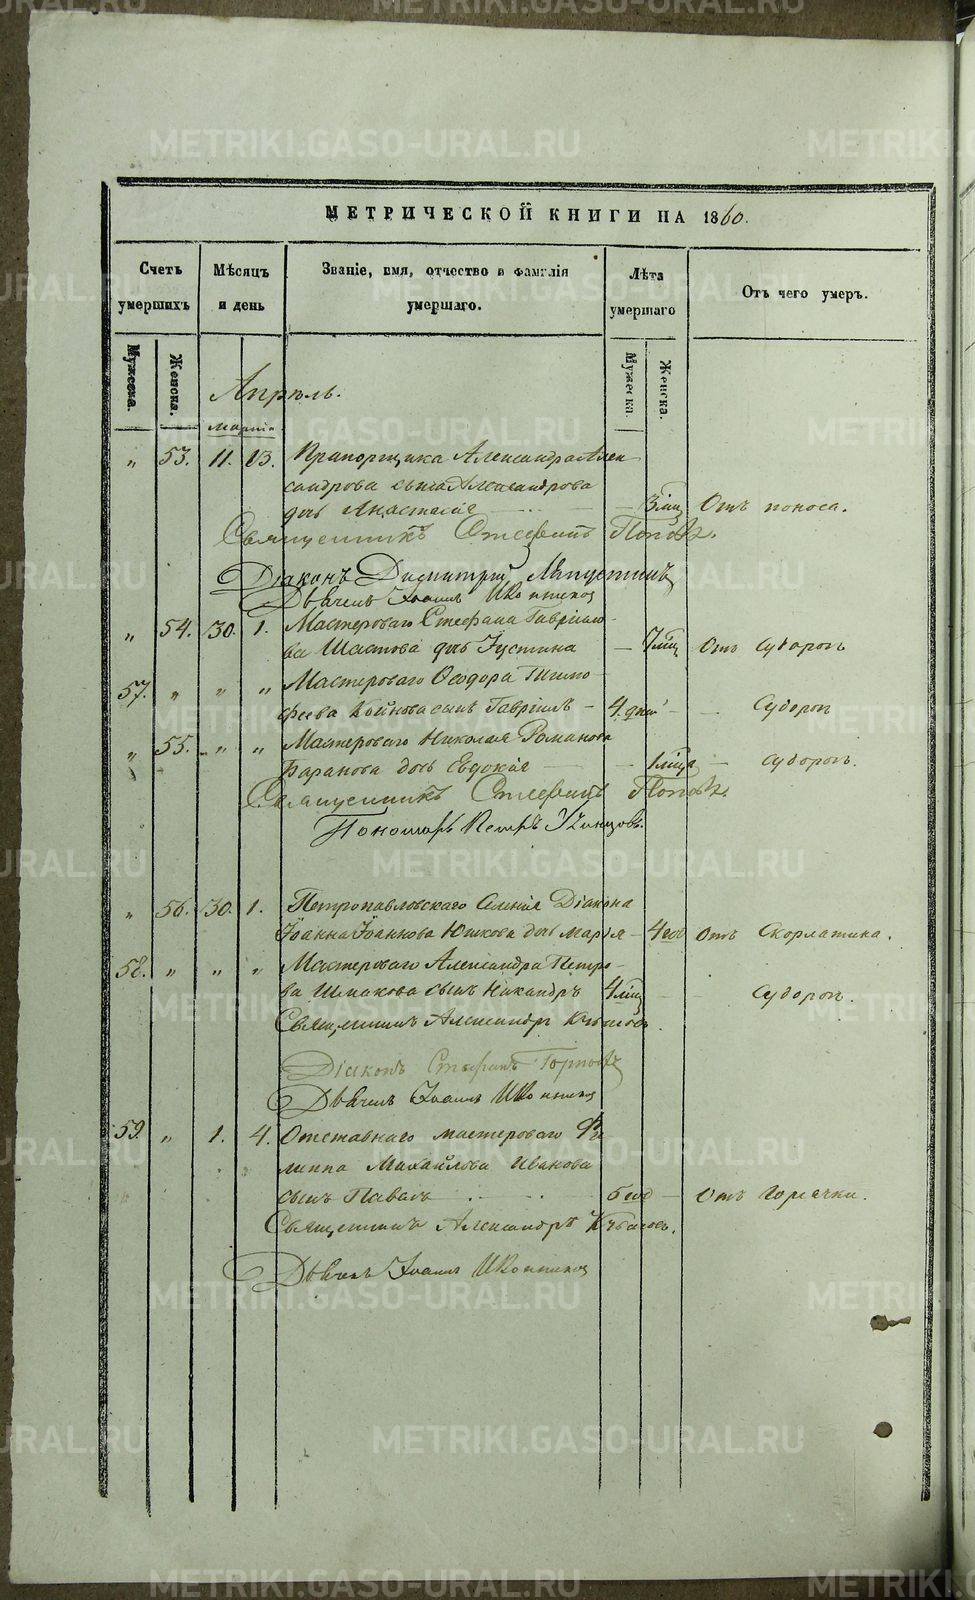 МЕТРИЧЕСКОЙ КНИГИ НА 1860.
Счетъ умершихъ
Мѣсяцъ и день
Званіе, имя, отчество и фамилія умершаго.
Лѣта умершаго
Отъ чего умеръ.
Мужеска. Женска.
Мужеска. Женска.
Апрѣль.
марта
„ 53. 11. 13. Прапорщика Александра Алек
сандрова сына Александрова
дочь Анастасія — 3 мѣц Отъ поноса.
Священникъ Стефанъ Поповъ.
Діаконъ Димитрій
Дьячекъ Іоаннъ Иконников
„ 54. 30. 1. Мастероваго Стефана Гаврило
ва Шастова дочь Іустина — 7 мѣц Отъ судорогъ
57. „ „ „ Мастероваго Ѳеодора Тимо
феева сынъ Гавріилъ — 4. дней — судорогъ
„ 55. „ „ Мастероваго Николая Романова
Баранова дочь Евдокія — 1 мѣца — судорогъ.
Священникъ Стефанъ Поповъ.
Пономарь Петръ
„ 56. 30. 1. Петропавловскаго селенія Діакона
Іоанна Іоаннова Юшкова дочь Марія — 4 год Отъ Скорлатина.
58. „ „ „ Мастероваго Александра Петро-
ва Шмакова сынъ Никандръ 4 мѣц — судорогъ.
Священникъ Александръ
Діаконъ Стефанъ
Дьячекъ Іоаннъ Иконников
59. „ 1. 4. Отставнаго мастероваго Фи
липпа Михайлова Ивакова
сынъ Павелъ — 6 год — Отъ горячки.
Священникъ Александръ
Дьячекъ Іоаннъ Иконников
METRIKI.GASO-URAL.RU